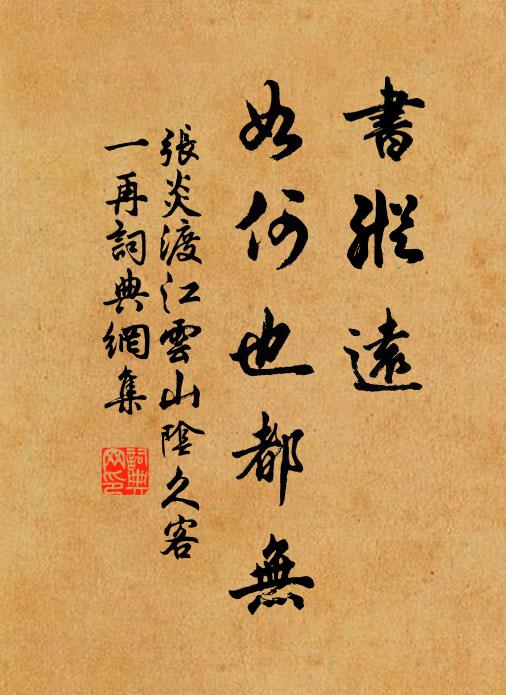 書縱遠
如何也都無
張炎渡江雲山陰久客
一再詞典網集
詞典網印